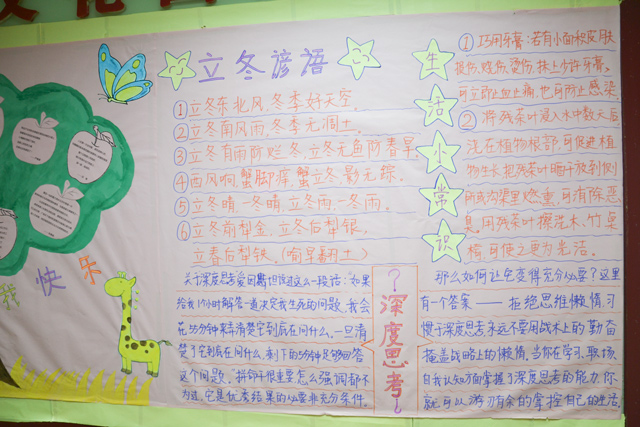 立冬谚语
①立冬东北风,冬季好天空.
②立冬南风雨,冬季无涸土.
③立冬有雨防烂冬,立冬无鱼防春旱.
④西风响,蟹脚痒,蟹立冬,影无踪.
⑤立冬晴,一冬晴,立冬雨,一冬雨.
⑥立冬前犁金,立冬后犁银,
立春后犁铁.(喻早翻土)
生活小常识
①巧用牙膏:若有小面积皮肤
损伤、烧伤、烫伤,抹上少许牙膏,
可立即止血止痛,也可防止感染.
②将残茶叶浸入水中数天后
浇在植物根部,可促进植
物生长,把残茶叶晒干,放到厕
所或沟渠里燃熏,可消除恶
臭.用残茶叶擦洗木、竹桌
椅,可使之更为光洁.
我快乐
关于深度思考爱因斯坦说过这么一段话:"如果
给我1小时解答一道决定我生死的问题,我会
花55分钟来弄清楚它到底在问什么.一旦清
楚了它到底在问什么,剩下的5分钟足够回答
这个问题."拼命干很重要怎么强调都不
为过,它是优秀结果的必要非充分条件.
?深度思考?
那么如何让它变得充分必要?这里
有一个答案——拒绝思维懒惰,习
惯于深度思考永远不要用战术上的勤奋
掩盖战略上的懒惰,当你在学习、职场、
自我认知方面掌握了深度思考的能力,你
就可以游刃有余的掌控自己的生活.